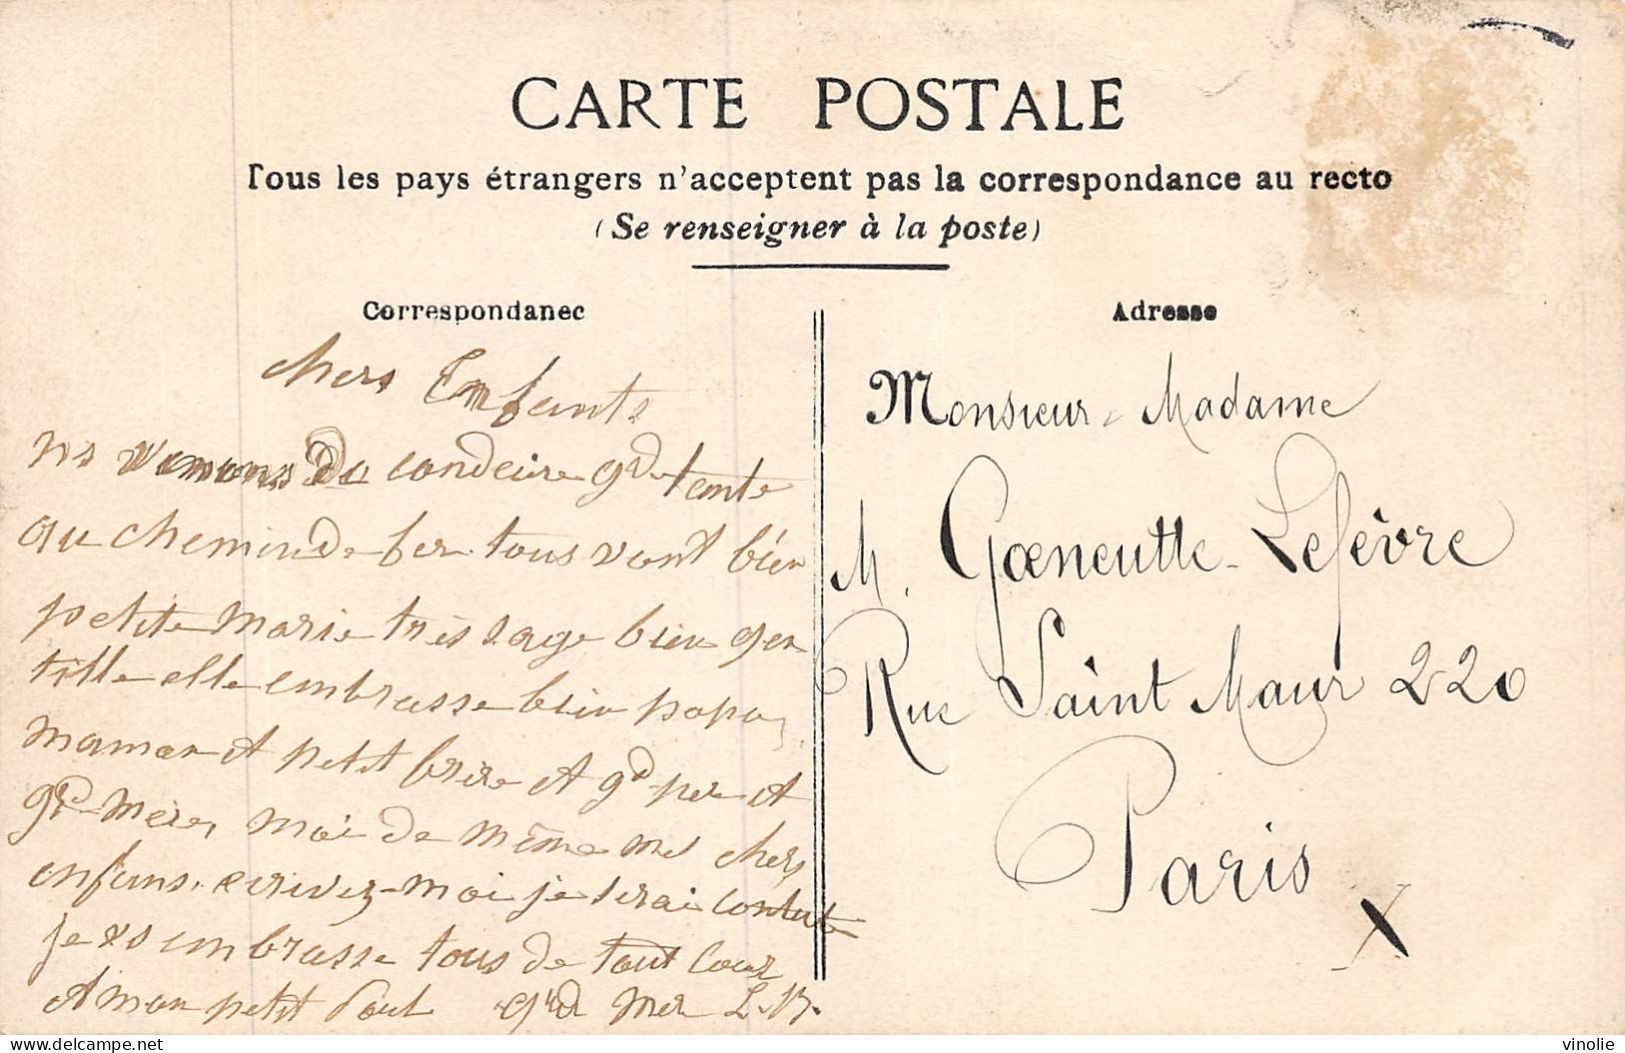 CARTE POSTALE
Tous les pays étrangers n'acceptent pas la correspondance au recto
(Se renseigner à la poste)
Correspondanec
Adresse
chers Enfants
ns venons de condeire grde tente
au chemin de fer tous vont bien
petite marie très sage bien gen
tille elle embrasse bien papa,
maman et petit frère et gd per et
gd mère, moi de même mes chers
enfans. ecrivez-moi je serai contente
je vs embrasse tous de tout cœur
A mon petit Paul grd mer L. B.
Monsieur, Madame
M. Gœneutte-Lefèvre
Rue Saint Maur 220
Paris
X
delcampe.net
vinolie